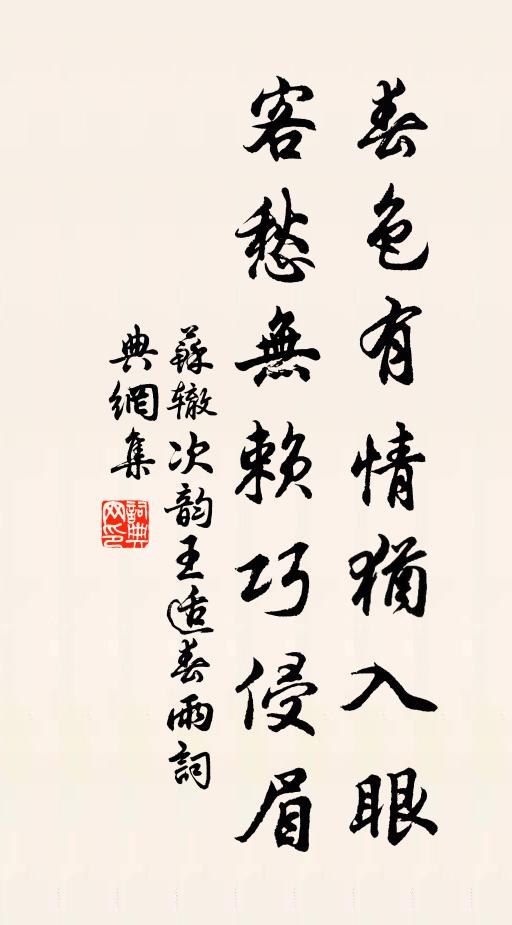 春色有情猶入眼
客愁無賴巧侵眉
蘇辙次韵王适春雨詞
典網集
詞典
网印